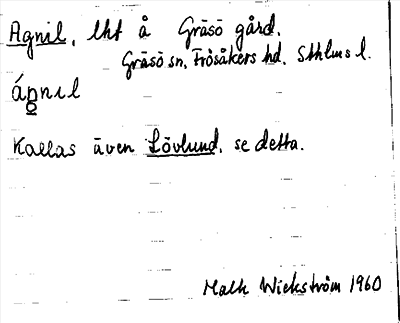 Agnil, lht å Gräsö gård.
Gräsö sn, Frösåkers hd. Sthlms l.
Kallas även Lövlund, se detta.
Malk Wickström 1960